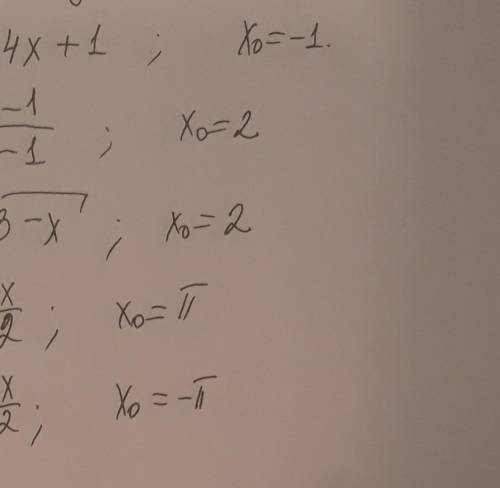 4x + 1 ; x₀ = -1.
-1/-1 ; x₀ = 2
√3 - x ; x₀ = 2
x/2 ; x₀ = π
x/2 ; x₀ = -π